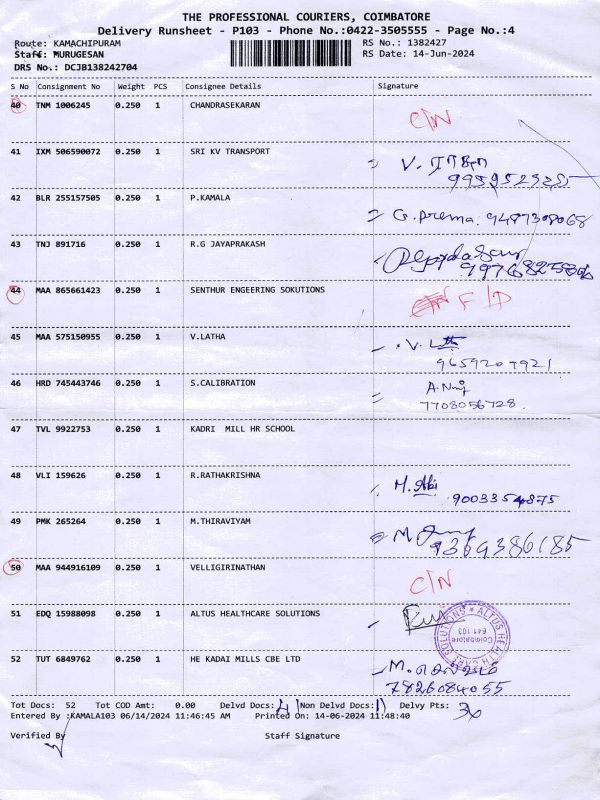 THE PROFESSIONAL COURIERS, COIMBATORE
Delivery Runsheet - P103 - Phone No.:0422-3505555 - Page No.:4
Route: KAMACHIPURAM RS No.: 1382427
Staff: MURUGESAN RS Date: 14-Jun-2024
DRS No.: DCJB138242704
S No Consignment No Weight PCS Consignee Details Signature
40 TNM 1006245 0.250 1 CHANDRASEKARAN C/N
41 IXM 506590072 0.250 1 SRI KV TRANSPORT V.
42 BLR 255157505 0.250 1 P.KAMALA G. prema. 9487308068
43 TNJ 891716 0.250 1 R.G JAYAPRAKASH
44 MAA 865661423 0.250 1 SENTHUR ENGEERING SOKUTIONS F/D
45 MAA 575150955 0.250 1 V.LATHA V. Latha
9659207921
46 HRD 745443746 0.250 1 S.CALIBRATION
7708056728
47 TVL 9922753 0.250 1 KADRI MILL HR SCHOOL
48 VLI 159626 0.250 1 R.RATHAKRISHNA M. Abi
9003354875
49 PMK 265264 0.250 1 M.THIRAVIYAM M
9364386185
50 MAA 944916109 0.250 1 VELLIGIRINATHAN C/N
51 EDQ 15988098 0.250 1 ALTUS HEALTHCARE SOLUTIONS
ALTUS HEALTH CARE SOLUTIONS
Coimbatore
641 103
52 TUT 6849762 0.250 1 HE KADAI MILLS CBE LTD M.
7826084055
Tot Docs: 52 Tot COD Amt: 0.00 Delvd Docs: 41 Non Delvd Docs: 11 Delvy Pts: 36
Entered By :KAMALA103 06/14/2024 11:46:45 AM Printed On: 14-06-2024 11:48:40
Verified By Staff Signature